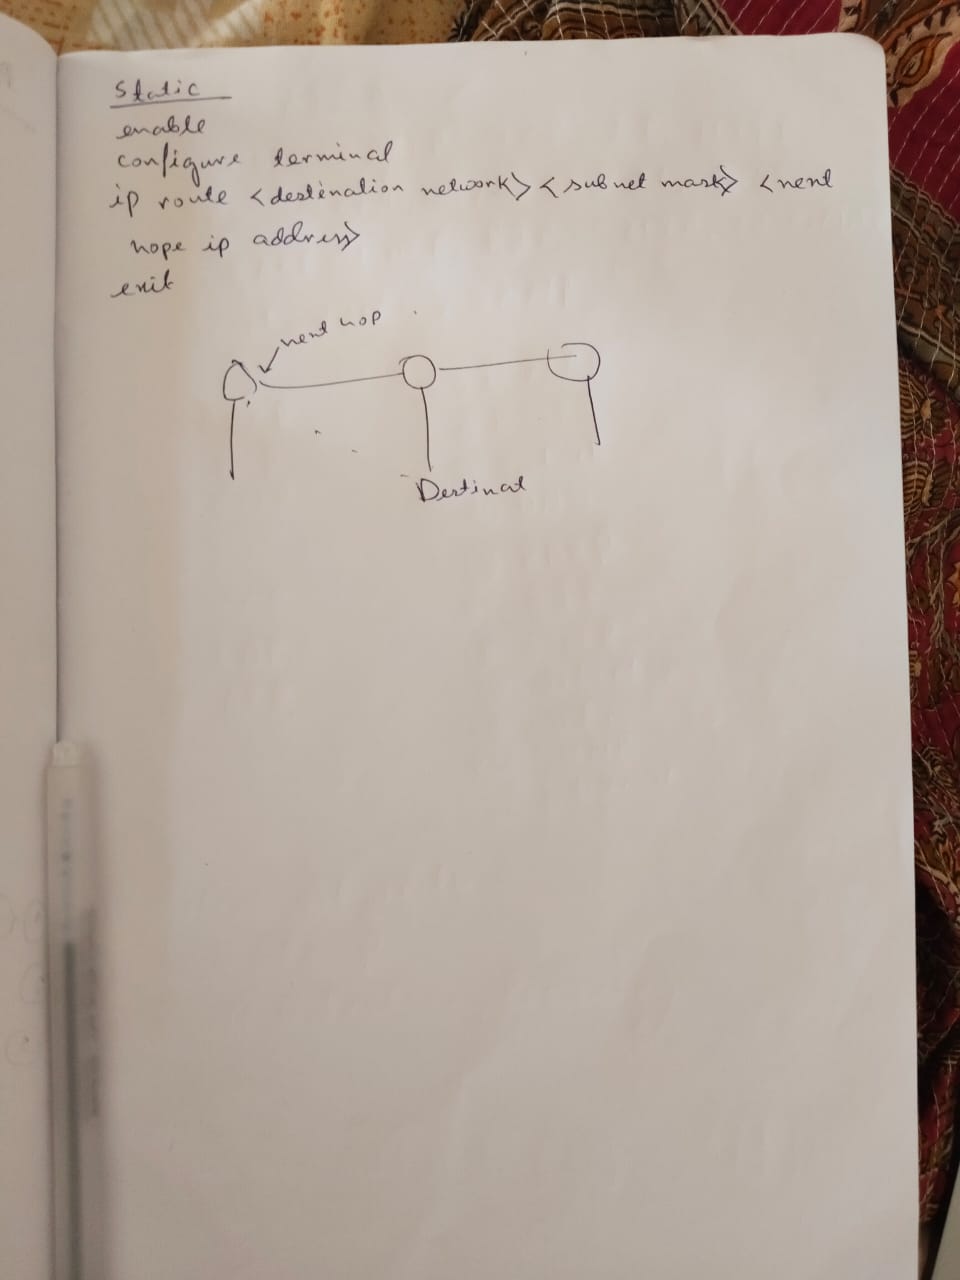 Static
enable
configure terminal
ip route <destination network> <subnet mask> <next
hope ip address>
exit
next hop
Destinat